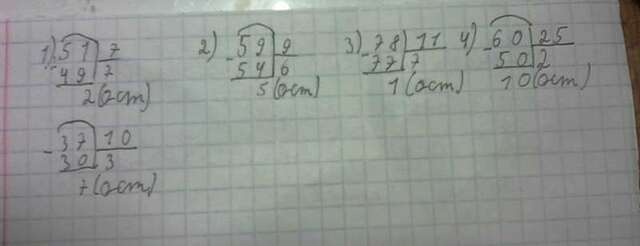 1) 51 7 2) 59 9 3) 78 11 4) 60 25
- 49 7 - 54 6 - 77 7 - 50 2
2 (ост) 5 (ост) 1 (ост) 10 (ост)
- 37 10
30 3
7 (ост)